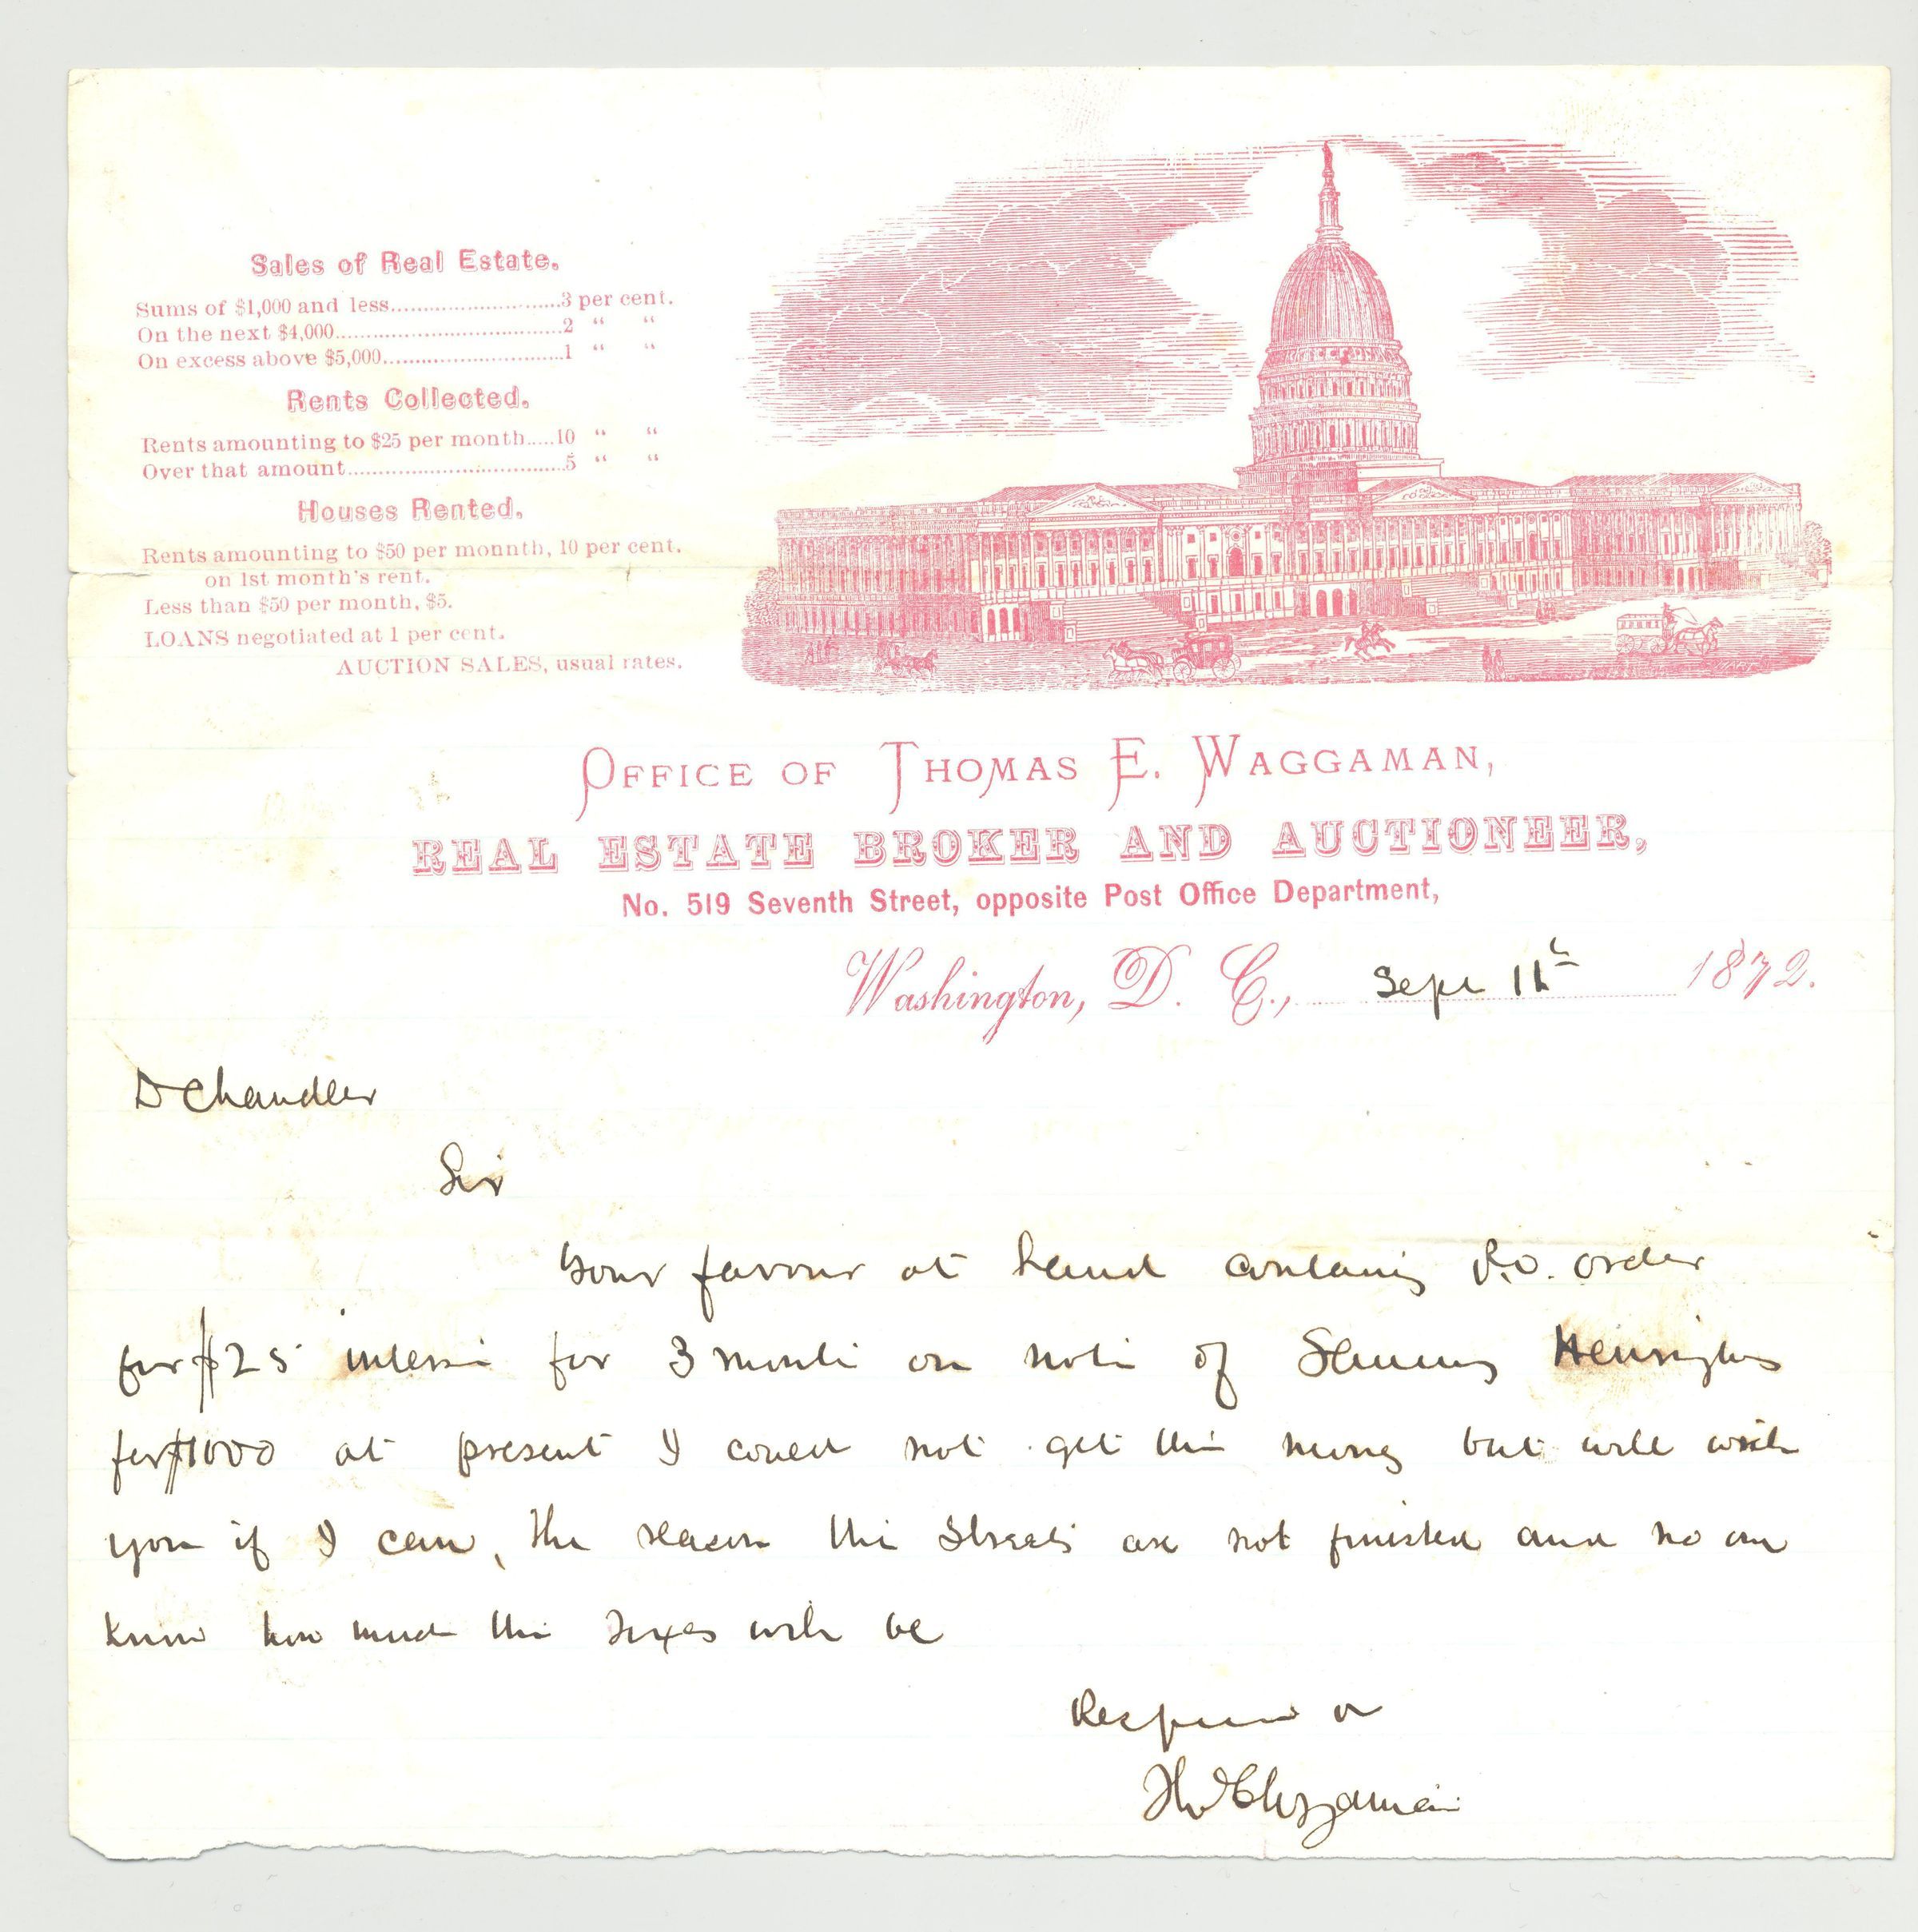 Sales of Real Estate.
Sums of $1,000 and less..........................3 per cent.
On the next $4,000....................................2 “ “
On excess above $5,000.............................1 “ “
Rents Collected.
Rents amounting to $25 per month.....10 “ “
Over that amount....................................5 “ “
Houses Rented.
Rents amounting to $50 per monnth, 10 per cent.
on 1st month's rent.
Less than $50 per month, $5.
LOANS negotiated at 1 per cent.
AUCTION SALES, usual rates.
OFFICE OF THOMAS E. WAGGAMAN,
REAL ESTATE BROKER AND AUCTIONEER,
No. 519 Seventh Street, opposite Post Office Department,
Washington, D. C., Sept 1872.
D Chandler
Sir
Your favour at hand containing P.O. order
for $25 interest for 3 months on note of
for $1000 at present I could not get the money but will
you if I can, the reason the streets are not finished and no one
know how much the taxes will be
Thos E Waggaman